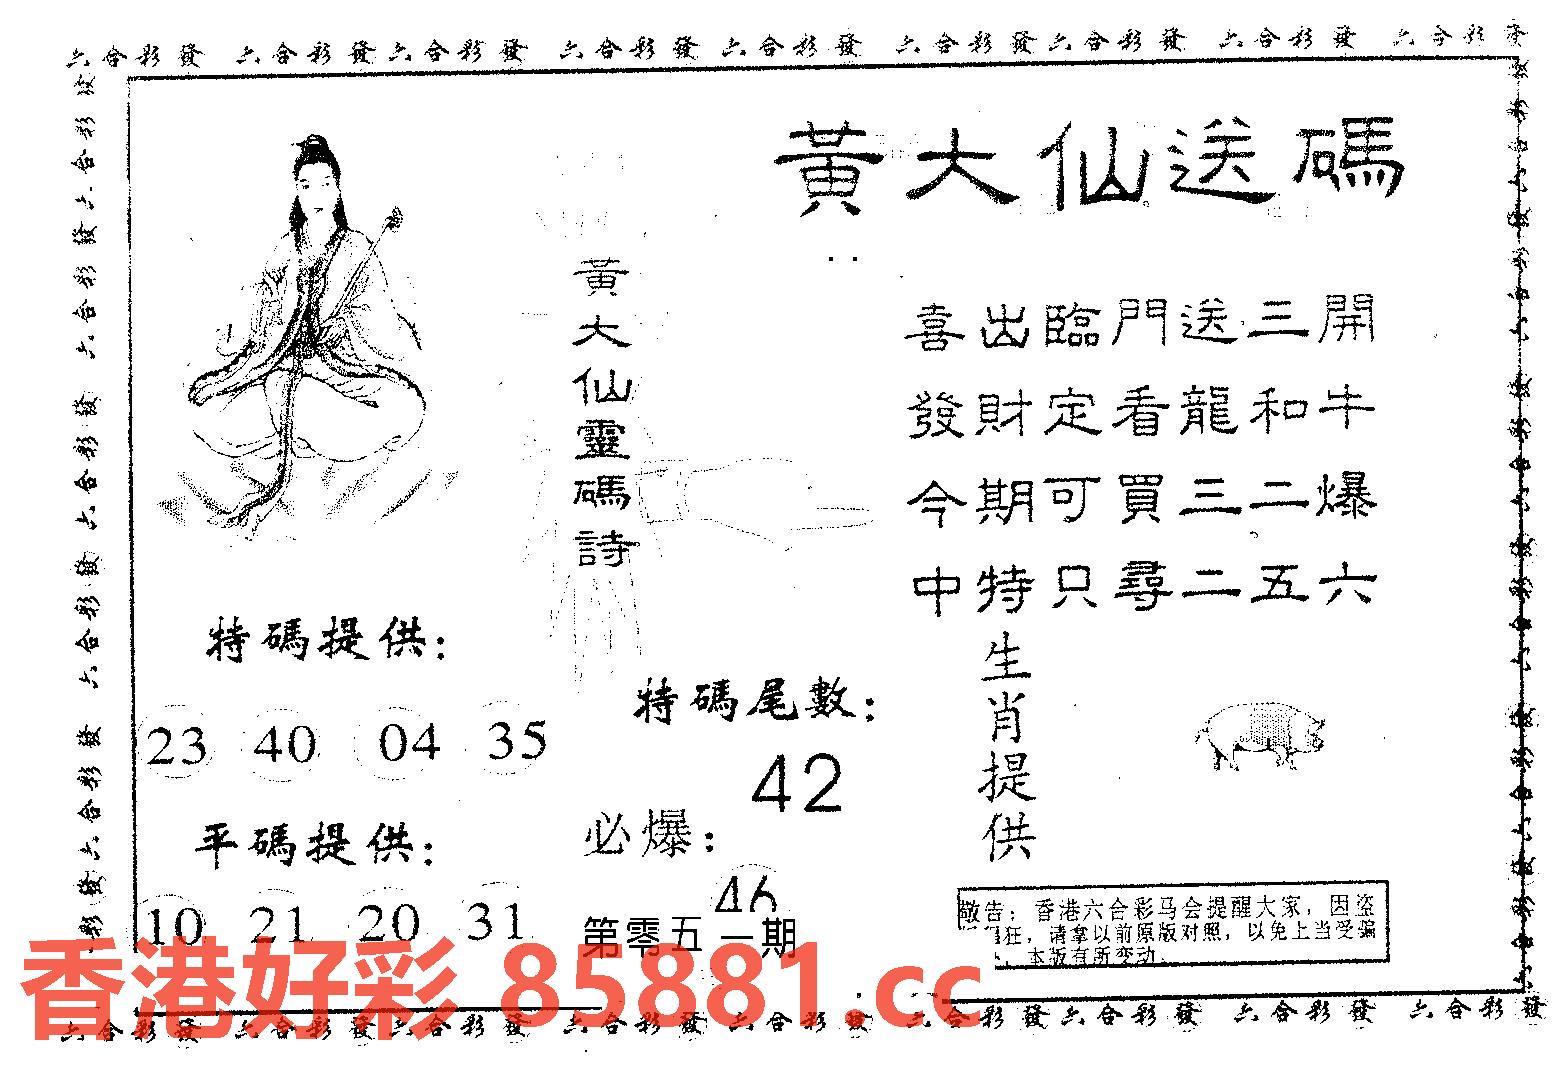 六合彩發 六合彩發六合彩發 六合彩發 六合彩發 六合彩發六合彩發 六合彩發 六合彩發
黃大仙送碼
黃大仙靈碼詩
喜出臨門送三開
發財定看龍和牛
今期可買三二爆
中特只尋二五六
特碼提供：
23 40 04 35
平碼提供：
10 21 20 31
特碼尾數：
42
必爆：
46
第零五一期
生肖提供
敬告：香港六合彩马会提醒大家，因盗
狂，请拿以前原版对照，以免上当受骗
，本版有所变动.
香港好彩 85881.cc
六合彩發 六合彩發六合彩發 六合彩發 六合彩發 六合彩發六合彩發 六合彩發 六合彩發